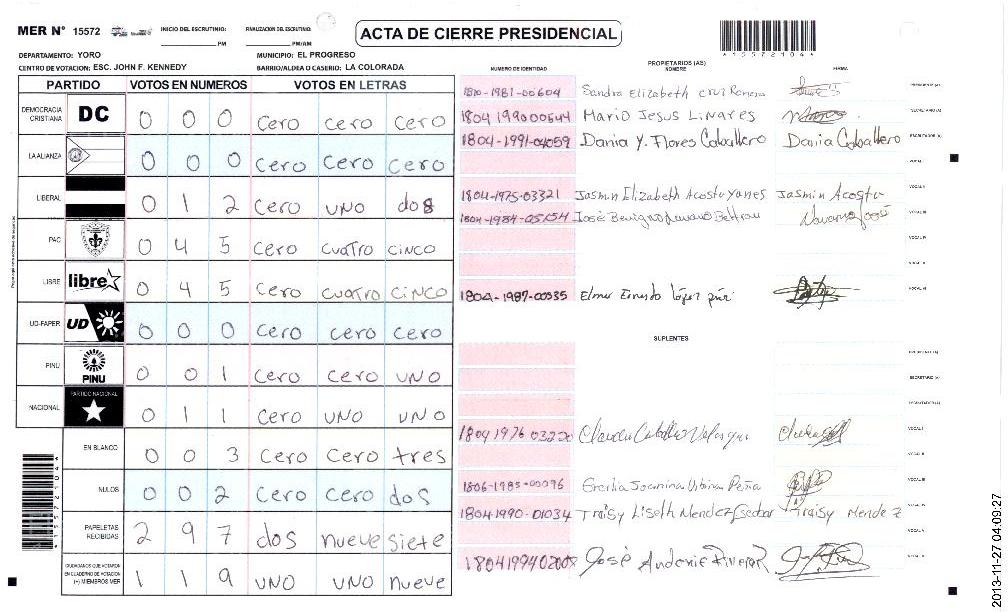 MER N° 15572 INICIO DEL ESCRUTINIO: PM FINALIZACION DEL ESCRUTINIO: PM/AM
ACTA DE CIERRE PRESIDENCIAL
*155721104*
DEPARTAMENTO: YORO MUNICIPIO: EL PROGRESO
CENTRO DE VOTACION: ESC. JOHN F. KENNEDY BARRIO/ALDEA O CASERIO: LA COLORADA
PARTIDO VOTOS EN NUMEROS VOTOS EN LETRAS
DEMOCRACIA CRISTIANA DC 0 0 0 cero cero cero
LA ALIANZA 0 0 0 cero cero cero
LIBERAL 0 1 2 cero uno dos
PAC 0 4 5 cero cuatro cinco
LIBRE libre 0 4 5 cero cuatro cinco
UD-FAPER UD 0 0 0 cero cero cero
PINU PINU 0 0 1 cero cero uno
NACIONAL PARTIDO NACIONAL 0 1 1 cero uno uno
EN BLANCO 0 0 3 cero cero tres
NULOS 0 0 2 cero cero dos
PAPELETAS RECIBIDAS 2 9 7 dos nueve siete
CIUDADANOS QUE VOTARON EN CUADERNO DE VOTACION (+) MIEMBROS MER 1 1 9 uno uno nueve
PROPIETARIOS (AS)
NUMERO DE IDENTIDAD NOMBRE FIRMA
1981-00604 Sandra Elizabeth cruz Romero PRESIDENTE (A)
1804 1990 00644 Mario Jesus Linares SECRETARIO (A)
1804-1991-04059 Dania Y. Flores Caballero Dania Caballero ESCRUTADOR (A)
VOCAL I
1804-1975-03321 Jasmin Elizabeth Acosta Yanes Jasmin Acosta VOCAL II
1804-1984-05154 José Benigno Navarro Beltran Navarro José VOCAL III
VOCAL IV
VOCAL V
1804-1987-00535 Elmer Ernesto López VOCAL VI
SUPLENTES
PRESIDENTE (A)
SECRETARIO (A)
ESCRUTADOR (A)
1804 1976 03220 Claudia VOCAL I
VOCAL II
1806-1985-00096 Peña VOCAL III
1804 1990-01034 Traisy Liseth Mendez Traisy Mendez VOCAL IV
VOCAL V
1804 1994 José Antonio Rivera
2013-11-27 04:09:27